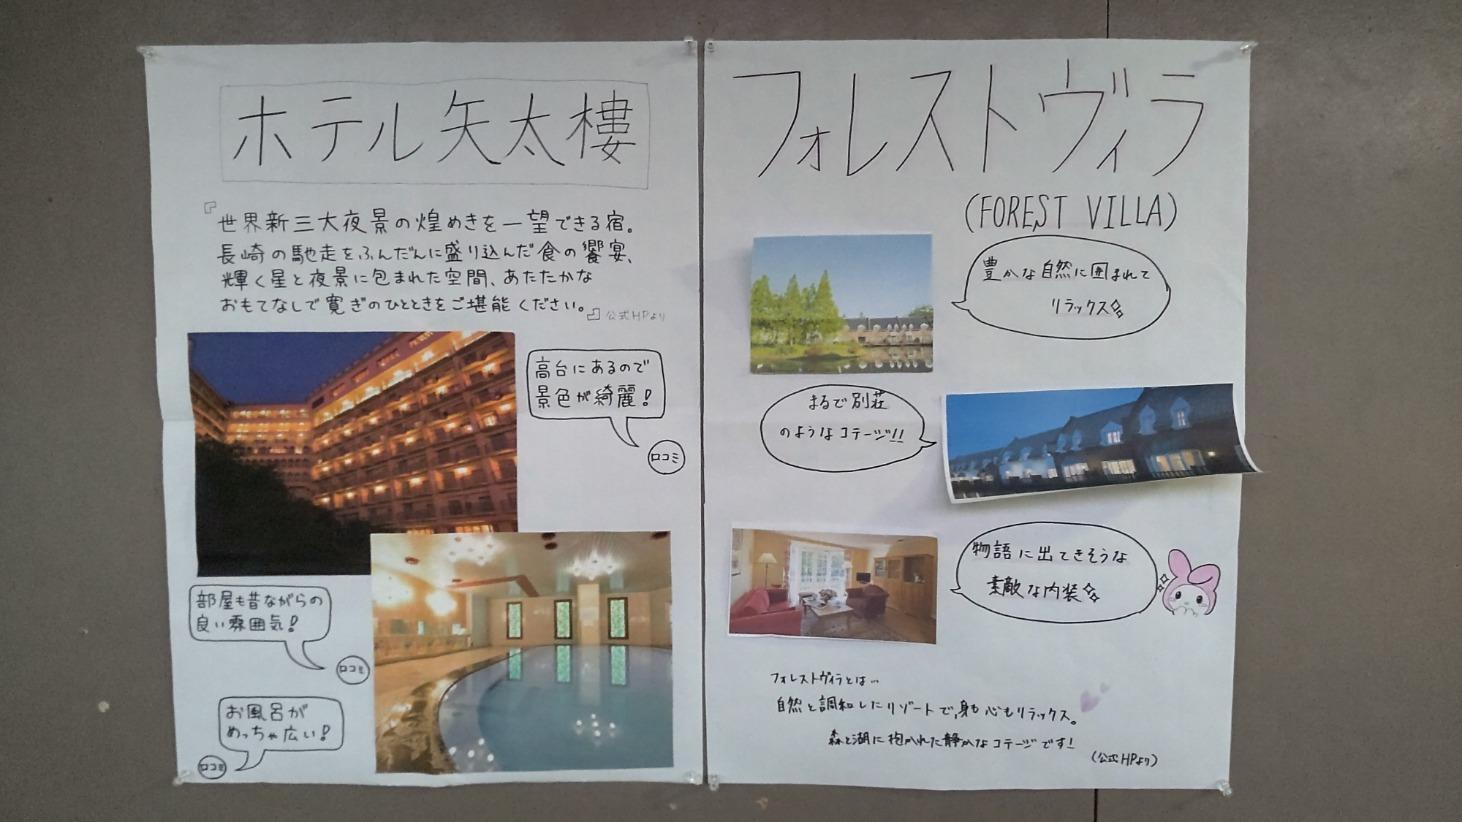 ホテル矢太樓
『世界新三大夜景の煌めきを一望できる宿。
長崎の馳走をふんだんに盛り込んだ食の饗宴、
輝く星と夜景に包まれた空間、あたたかな
おもてなしで寛ぎのひとときをご堪能ください。』公式HPより
高台にあるので
景色が綺麗!
口コミ
部屋も昔ながらの
良い雰囲気!
口コミ
お風呂が
めっちゃ広い!
口コミ
フォレストヴィラ
(FOREST VILLA)
豊かな自然に囲まれて
リラックス
まるで別荘
のようなコテージ!!
物語に出てきそうな
素敵な内装
フォレストヴィラとは…
自然と調和したリゾートで、身も心もリラックス。
森と湖に抱かれた静かなコテージです!
(公式HPより)